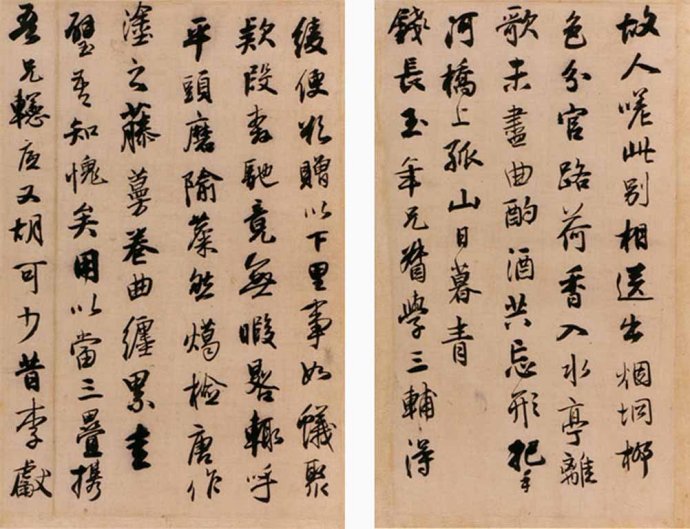 故人嗟此別相送出烟坰柳
色分官路荷香入水亭離
歌未盡曲酌酒共忘形把手
河橋上孤山日暮青
錢長玉年兄督學三輔得
綾便欲贈以下里事如蟻聚
欵段書馳竟無暇晷輒呼
平頭磨隃麋然燭檢唐作
塗之藤蔓卷曲纏累圭
璧吾知愧矣用以當三疊携
吾兄又胡可少昔李獻